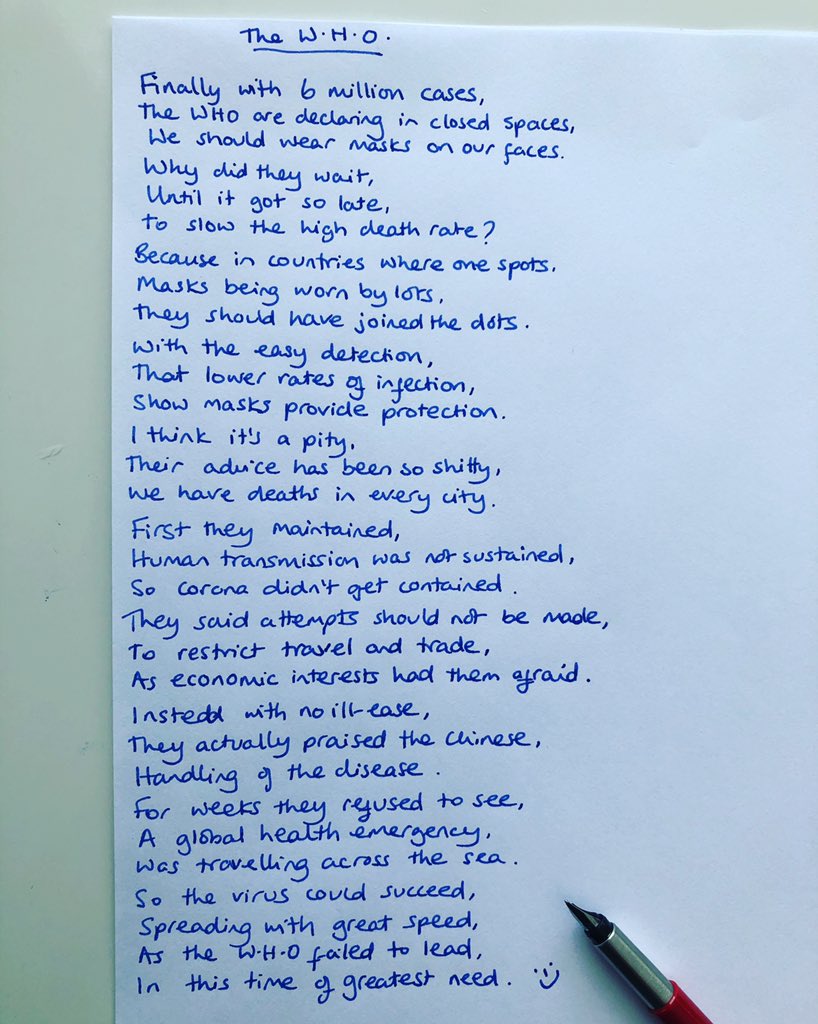 The W.H.O.
Finally with 6 million cases,
The WHO are declaring in closed spaces,
We should wear masks on our faces.
Why did they wait,
Until it got so late,
To slow the high death rate?
Because in countries where one spots.
Masks being worn by lots,
They should have joined the dots.
With the easy detection,
That lower rates of infection,
Show masks provide protection.
I think it's a pity,
Their advice has been so shitty,
We have deaths in every city.
First they maintained,
Human transmission was not sustained,
So corona didn't get contained.
They said attempts should not be made,
To restrict travel and trade,
As economic interests had them afraid.
Instead with no ill-ease,
They actually praised the Chinese,
Handling of the disease.
For weeks they refused to see,
A global health emergency,
Was travelling across the sea.
So the virus could succeed,
Spreading with great speed,
As the W.H.O failed to lead,
In this time of greatest need.